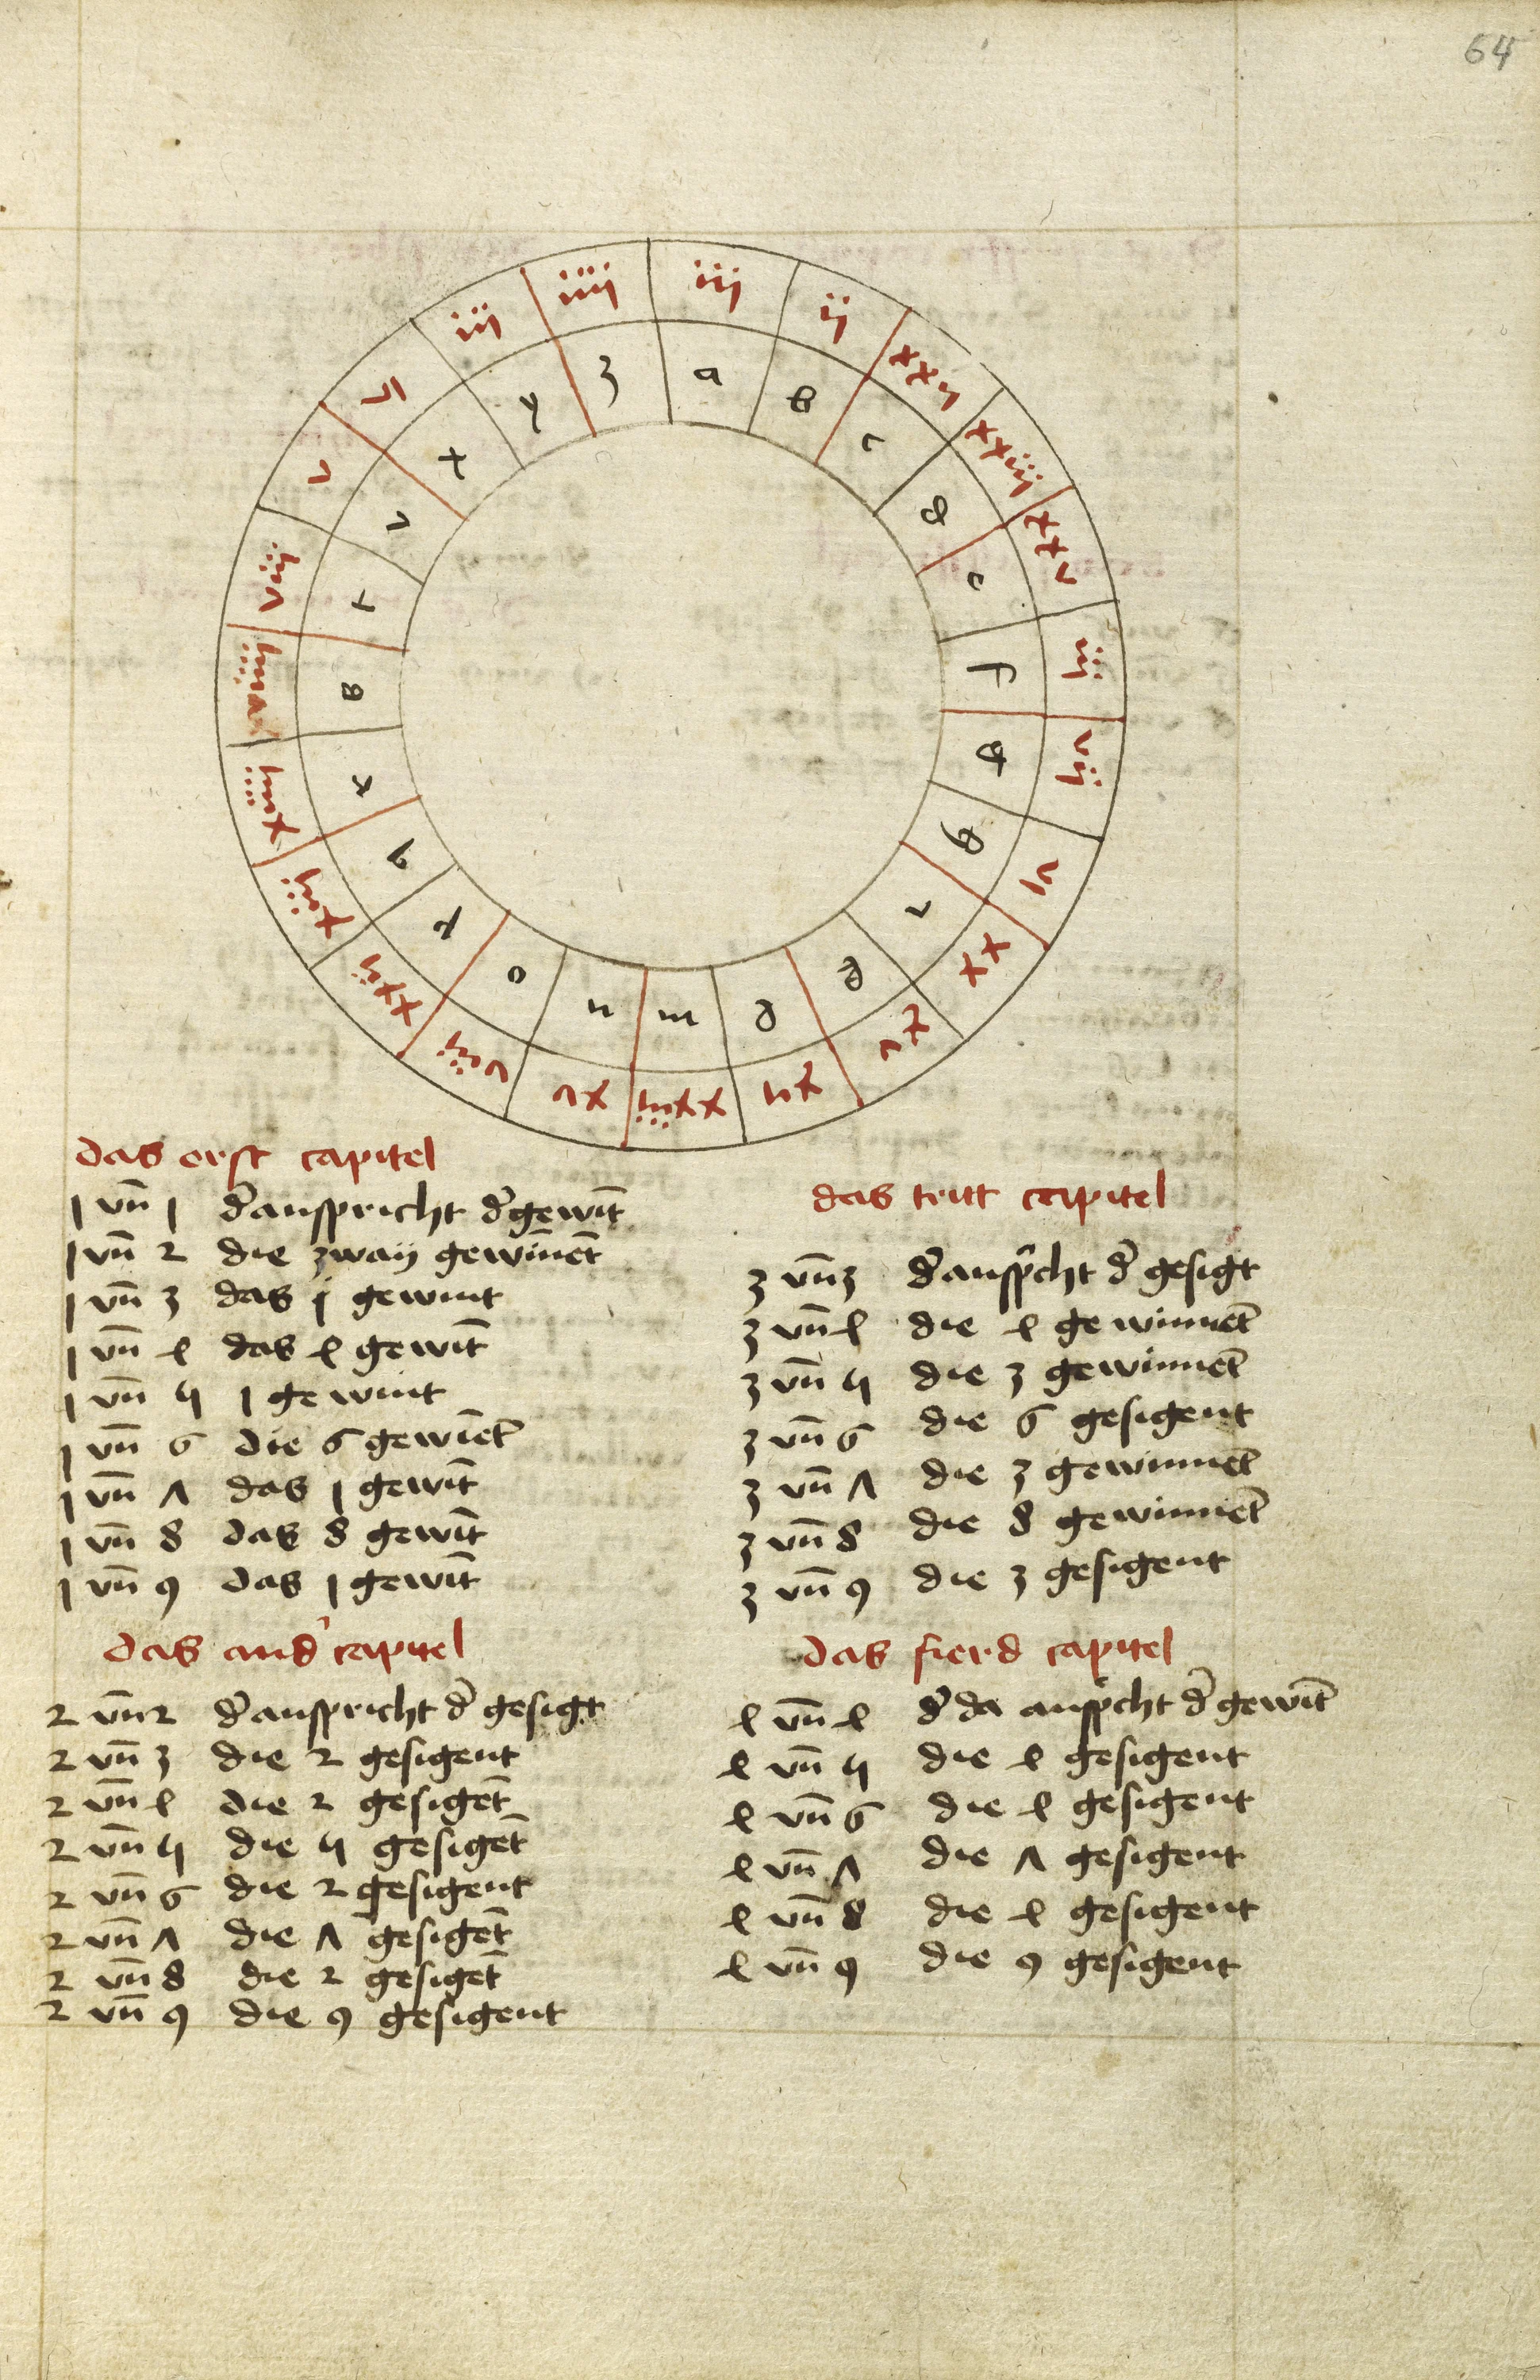 64
iiij iij ij xxij xxiij xxv iij vij vi xx xv xij xxiij xv viij xxij xiij xiiij viiij viij v vi iij
z a b c d e f g h i k l m n o p q r s t v x y
das erst capitel
1 vn̄ 1 d̄anspricht d̄ gewīt
1 vn̄ 2 die zwaÿ gewīnēt
1 vn̄ 3 das j gewint
1 vn̄ 4 das 4 gewīt
1 vn̄ 5 1 gewint
1 vn̄ 6 die 6 gewīet
1 vn̄ 7 das 1 gewīt
1 vn̄ 8 das 8 gewīt
1 vn̄ 9 das 1 gewīt
das and' capitel
2 vn̄ 2 d̄anspricht d̄ gesigt
2 vn̄ 3 die 2 gesigent
2 vn̄ 4 die 2 gesigēt
2 vn̄ 5 die 5 gesigēt
2 vn̄ 6 die 2 gesigent
2 vn̄ 7 die 7 gesigēt
2 vn̄ 8 die 2 gesigēt
2 vn̄ 9 die 9 gesigent
das tritt capitel
3 vn̄ 3 d̄anspcht d̄ gesigt
3 vn̄ 4 die 4 gewinnēt
3 vn̄ 5 die 3 gewinnēt
3 vn̄ 6 die 6 gesigent
3 vn̄ 7 die 3 gewinnēt
3 vn̄ 8 die 8 gewinnēt
3 vn̄ 9 die 3 gesigent
das fierd capitel
4 vn̄ 4 d̄ da anspcht d̄ gewīt
4 vn̄ 5 die 4 gesigent
4 vn̄ 6 die 4 gesigent
4 vn̄ 7 die 7 gesigent
4 vn̄ 8 die 4 gesigent
4 vn̄ 9 die 9 gesigent